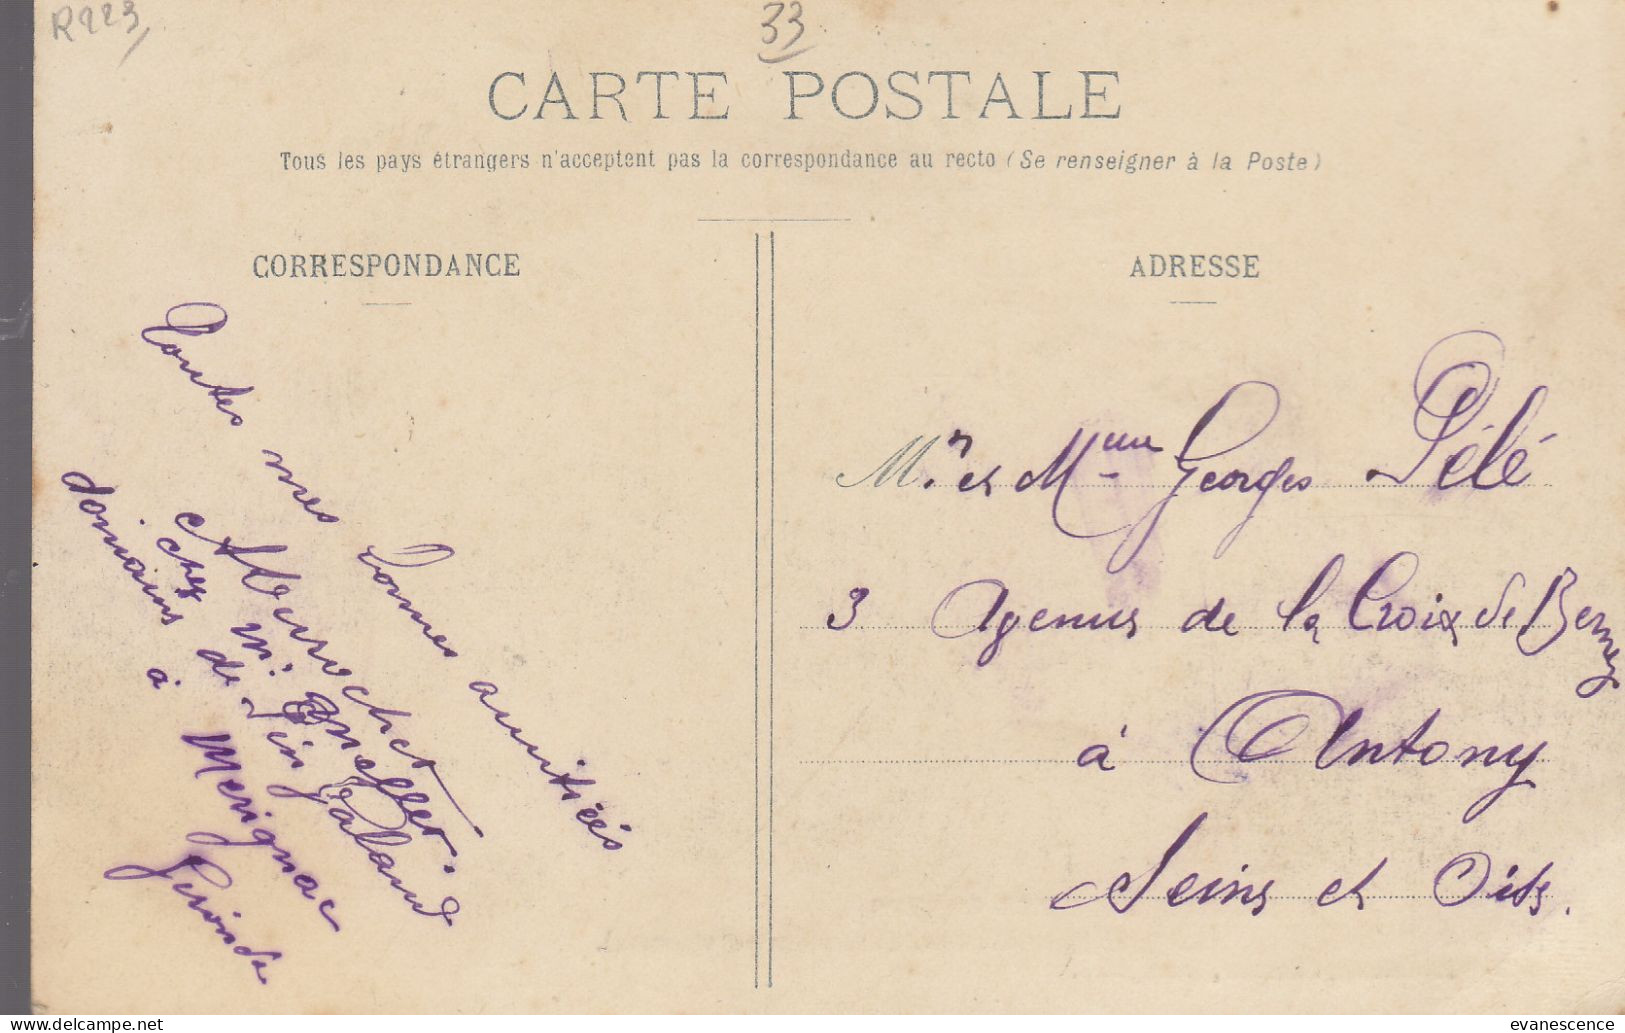 R223
33
CARTE POSTALE
Tous les pays étrangers n'acceptent pas la correspondance au recto (Se renseigner à la Poste)
CORRESPONDANCE
Toutes mes bonnes amitiées
chez Mr
domains de
à Merignac
Gironde
ADRESSE
Mr. et Mme Georges Pélé
3 Agenus de la Croix de Berney
à Antony
Seins et Oits.
evanescence